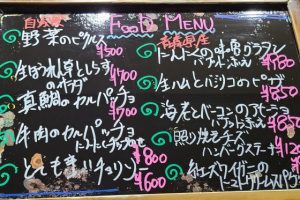 Food Menu
自家製
野菜のピクルス
¥500
生ほうれん草としらす
のサラダ
¥700
真鯛のカルパッチョ
¥700
牛肉のカルパッチョ
¥800
とんもき!!チョリソ
¥600
青森県産
にんにくの
グラタン
¥780
生ハムとバジリコのピザ
¥850
海老とベーコンのアヒージョ
¥850
照り焼きチーズ
ハンバーグステーキ
紅ズワイガニの
トマトクリームスパゲ